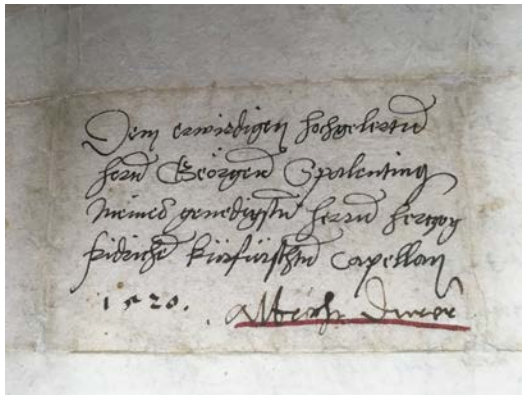 Dem erwirdigen hochgelertn̄
hern̄ Geörgen̄ Spalentino
meines genedigstn̄ herrn̄ hertzog
fridrichn̄ kürfürschtn̄ capellan
1520. Albrecht Durer